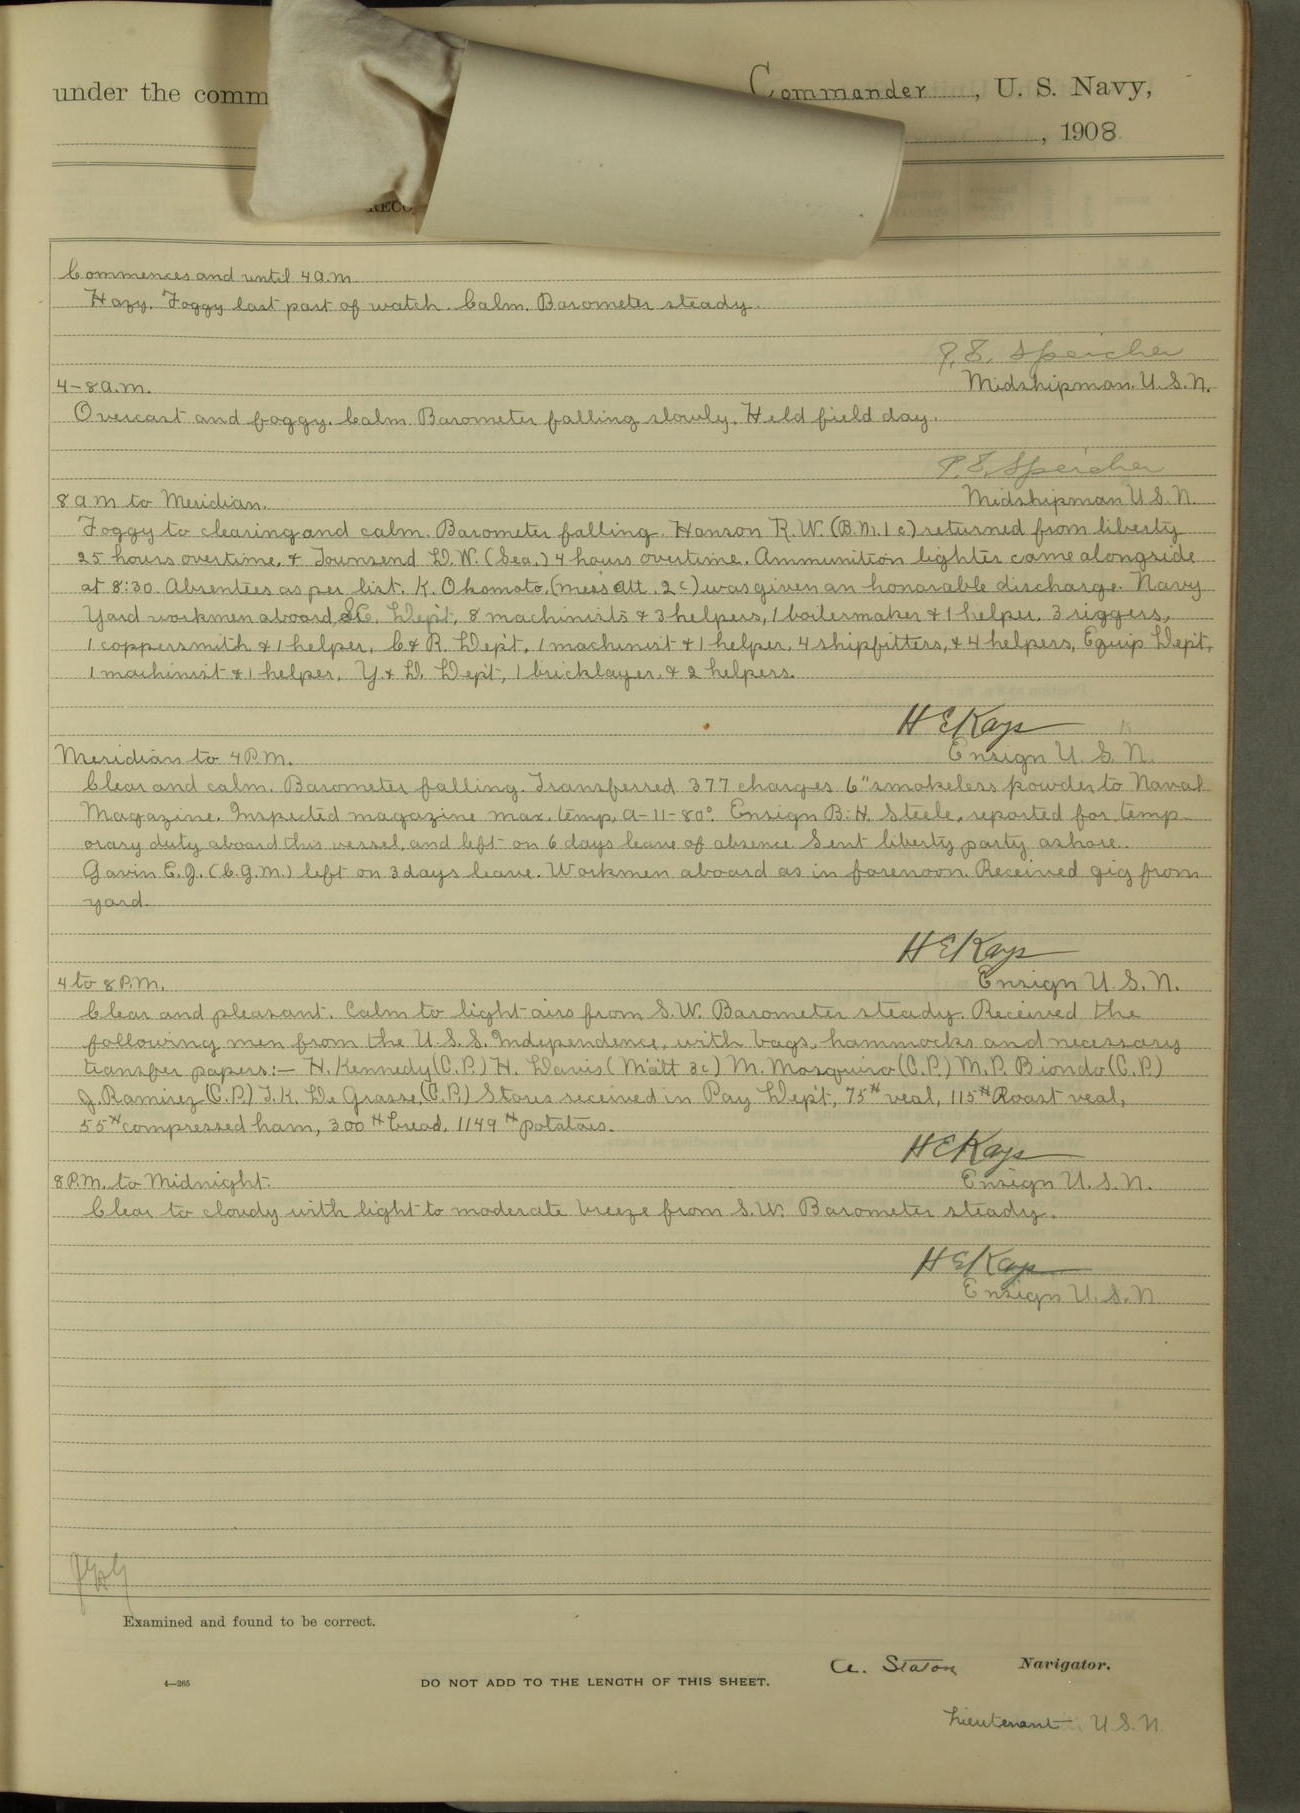 under the comm Commander, U. S. Navy,
, 1908
RECO
Commences and until 4 a.m.
Hazy. Foggy last part of watch. Calm. Barometer steady.
P. E. Speicher
Midshipman. U.S.N.
4-8 a.m.
Overcast and foggy. Calm. Barometer falling slowly. Held field day.
P. E. Speicher
Midshipman U.S.N.
8 a m to Meridian.
Foggy to clearing and calm. Barometer falling. Hanson R. W. (B.M. 1 c) returned from liberty
25 hours overtime, & Townsend D. W. (Sea.) 4 hours overtime. Ammunition lighter came alongside
at 8:30. Absentees as per list. K. Okomoto, (mess att. 2c) was given an honorable discharge. Navy
Yard workmen aboard, S.E. Dep't, 8 machinists & 3 helpers, 1 boilermaker & 1 helper, 3 riggers,
1 coppersmith & 1 helper, C & R. Dep't, 1 machinist & 1 helper, 4 shipfitters, & 4 helpers, Equip Dep't,
1 machinist & 1 helper, Y. & D. Dep't, 1 bricklayer, & 2 helpers.
H E Kays
Ensign U. S. N.
Meridian to 4 P.M.
Clear and calm. Barometer falling. Transferred 377 charges 6" smokeless powder to Naval
Magazine. Inspected magazine max. temp. A-11-80°. Ensign B. H. Steele, reported for temp-
orary duty aboard this vessel, and left on 6 days leave of absence. Sent liberty party ashore.
Gavin E. J. (C.G.M.) left on 3 days leave. Workmen aboard as in forenoon. Received gig from
yard.
H E Kays
Ensign U. S. N.
4 to 8 P.M.
Clear and pleasant. Calm to light airs from S.W. Barometer steady. Received the
following men from the U.S.S. Independence, with bags, hammocks and necessary
transfer papers:— H. Kennedy (C.P.) H. Davis (M'att 3c) M. Mosquiro (C.P.) M. P. Biondo (C.P.)
J. Ramirez (C.P.) T. K. De Grasse, (C.P.) Stores received in Pay Dep't, 75# veal, 115# Roast veal,
55# compressed ham, 300# bread, 1149# potatoes.
H E Kays
Ensign U.S.N.
8 P.M. to Midnight.
Clear to cloudy with light to moderate breeze from S.W. Barometer steady.
H E Kays
Ensign U.S.N
Examined and found to be correct.
A. Staton Navigator.
4—265
DO NOT ADD TO THE LENGTH OF THIS SHEET.
Lieutenant U.S.N.